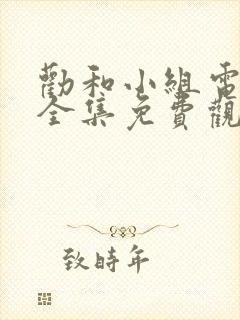 勸和小組電
全集免費觀
致時年